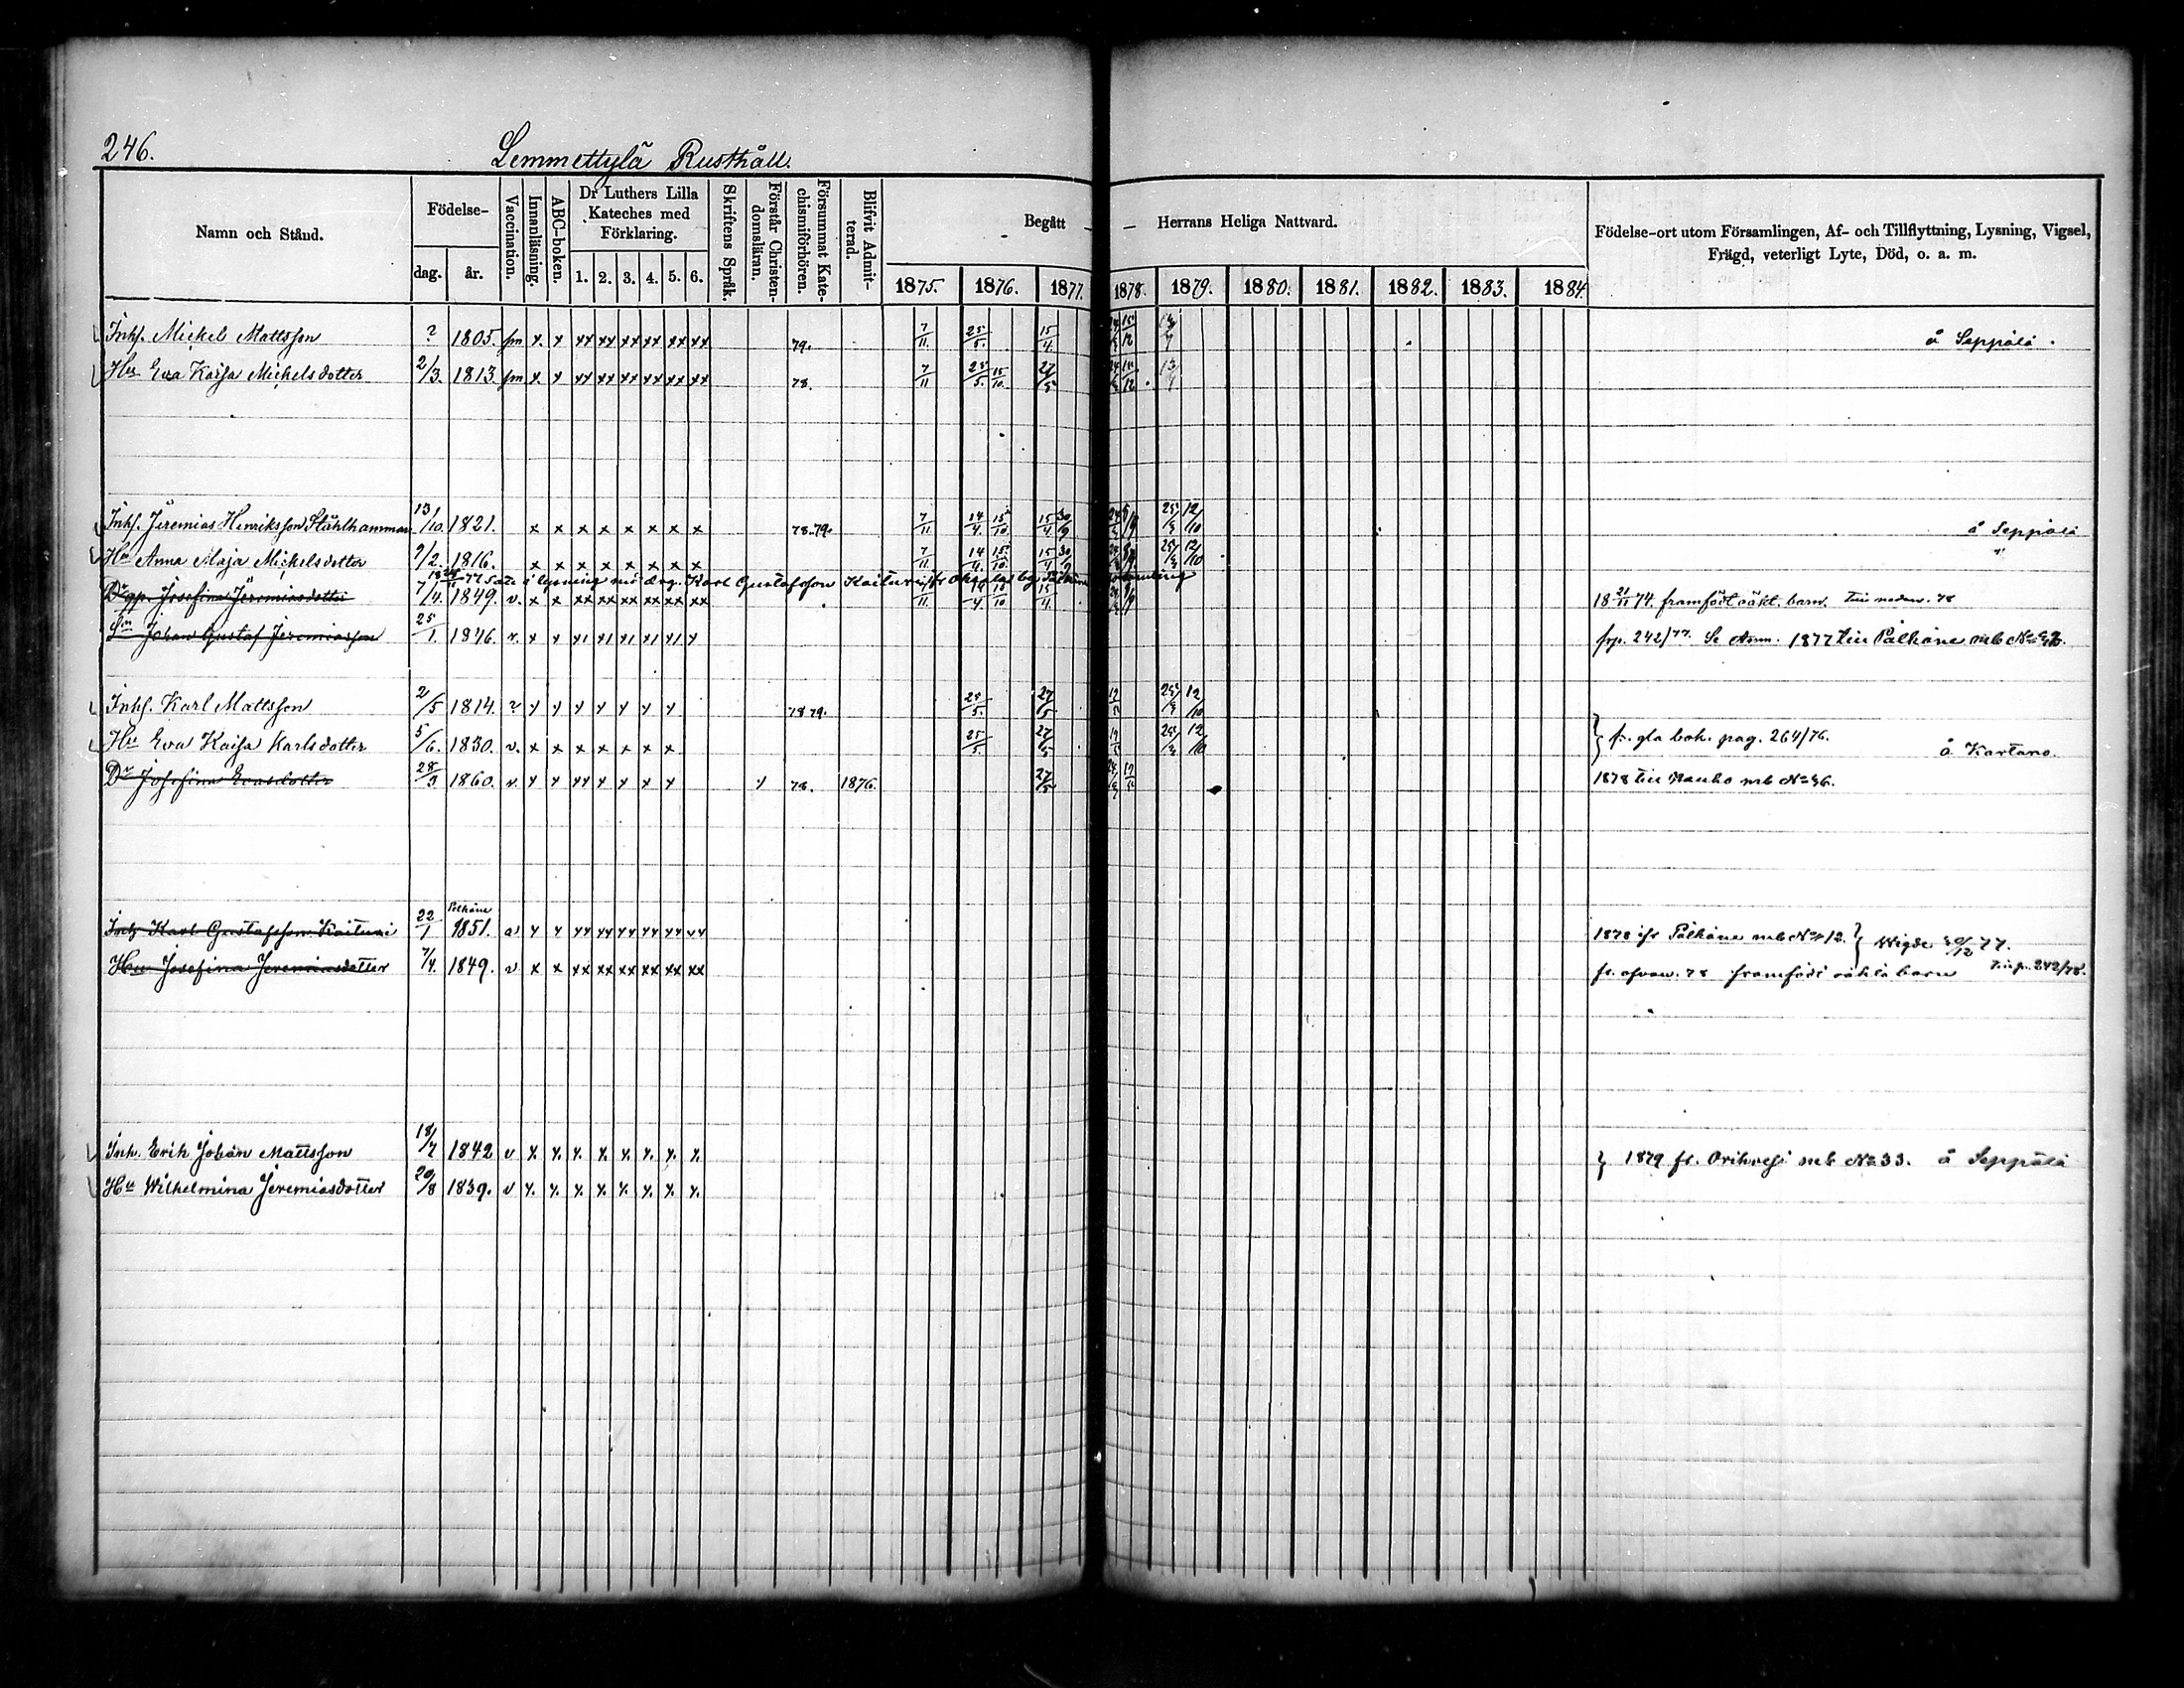 246.
Lemmettylä Rusthåll.
Namn och Stånd.
Födelse-
dag.
år.
Vaccination.
Innanläsning.
ABC-boken.
Dr Luthers Lilla
Kateches med
Förklaring.
1. 2. 3. 4. 5. 6.
Skriftens Språk.
Förstår Christen-
domsläran.
Försummat Kate-
chismiförhören.
Blifvit Admit-
terad.
Begått — Herrans Heliga Nattvard.
1875. 1876. 1877. 1878. 1879. 1880. 1881. 1882. 1883. 1884.
Födelse-ort utom Församlingen, Af- och Tillflyttning, Lysning, Vigsel,
Frägd, veterligt Lyte, Död, o. a. m.
Inhs. Mickel Mattsson ? 1805. x. x xx xx xx xx xx xx 79. 7/11. 25/5. 15/4. å Seppälä.
Hu Eva Kaisa Mickelsdotter 2/3. 1813. x x xx xx xx xx xx xx 78. 7/11 25/5. 15/10. 27/5
Inhs. Jeremias Henriksson Stålhammar 13/10. 1821. x x x x x x x x 78. 79. 7/11 14/4. 15/10. 15/4 30/9 12/10 å Seppälä
Hu Anna Maja Mickelsdotter 9/2. 1816. x x x x x x x x 7/11. 14/4. 15/10. 15/4 30/9 12/10 "
lysning med drg. Karl Gustafsson Kaituri
Dr Josefina Jeremiasdotter 7/4. 1849. v. x x xx xx xx xx xx xx 7/11. 14/4. 15/10 15/4. 18 21/11 74. framfödt oäkt. barn. Till nedan. 78
Sn Johan Gustaf Jeremiasson 25/1. 1846. v. x x frp. 242/77. Se Anm. 1877 till Pälkäne mb No
Inhs. Karl Mattsson 2/5 1814. ? x x x x x x x 78 79. 25/5. 27/5 12/10
Hu Eva Kaisa Karlsdotter 5/6. 1830. v. x x x x x x x 25/5. 27/5 12/10 fr. gla bok. pag. 264/76. å Kartano.
Dr Josefina Evasdotter 28/3 1860. v. x x xx x x x x x 78. 1876. 27/5 1878 till mb No
Pelkäne
Karl Gustafsson Kaituri 22/1 1851. v x x xx xx xx xx xx xx 1878 ifr Pälkäne mb No 12. } Wigde 77.
Hu Josefina Jeremiasdotter 7/4. 1849. v x x xx xx xx xx xx xx fr. ofvan. 78 framfödt oäkta barn Till p. 242/78.
Inh. Erik Johan Mattsson 18/7 1842 v x. x. x. x. x. x. x. x. } 1879 fr. Orihvesi mb No 33. å Seppälä
Hu Wilhelmina Jeremiasdotter 20/8 1839. v x. x. x. x. x. x. x. x.